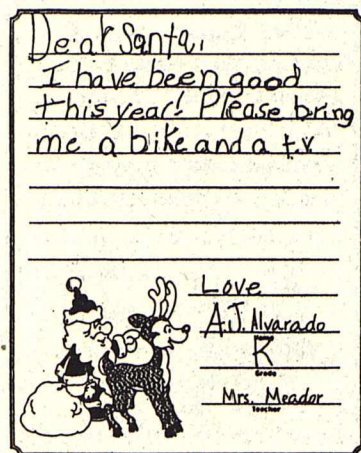 Dear Santa,
I have been good
this year! Please bring
me a bike and a t.v
Love
A.J. Alvarado
Name
K
Grade
Mrs. Meador
Teacher